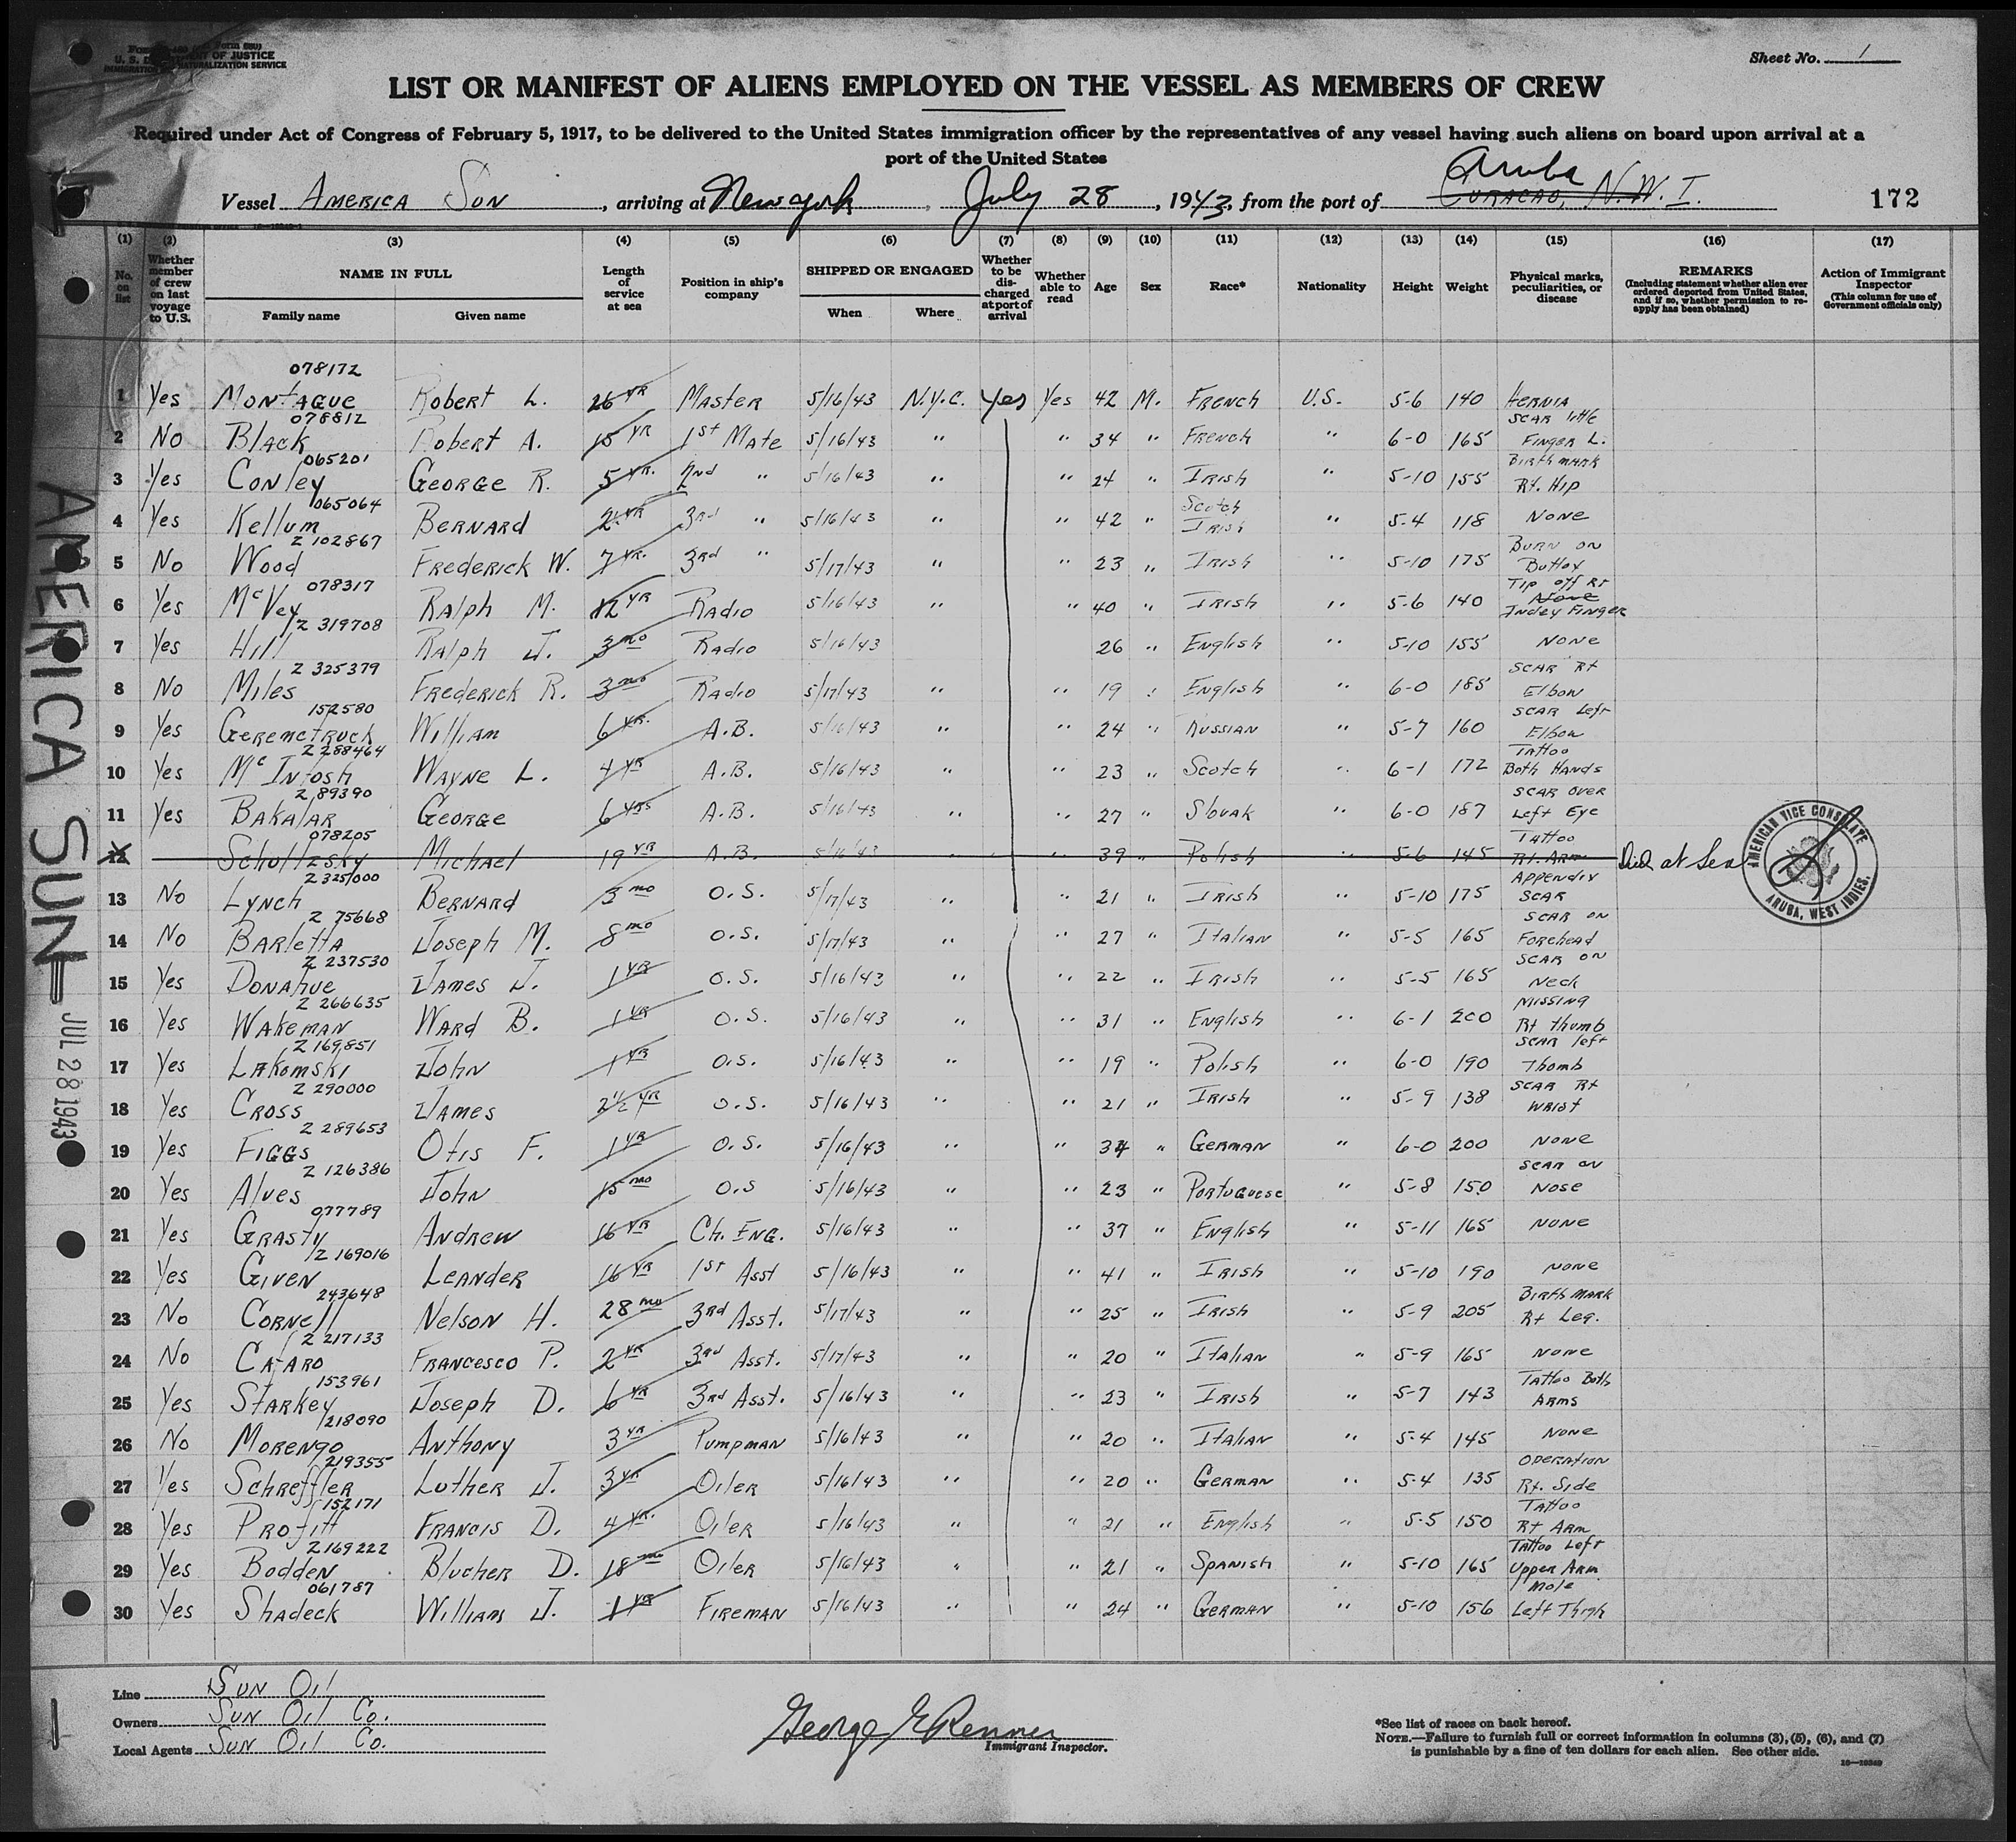 U. S. DEPARTMENT OF JUSTICE
IMMIGRATION AND NATURALIZATION SERVICE
Sheet No. 1
LIST OR MANIFEST OF ALIENS EMPLOYED ON THE VESSEL AS MEMBERS OF CREW
Required under Act of Congress of February 5, 1917, to be delivered to the United States immigration officer by the representatives of any vessel having such aliens on board upon arrival at a
port of the United States
Vessel America Sun, arriving at New York, July 28, 1943, from the port of Aruba Curacao, N.W.I.
172
(1) (2) (3) (4) (5) (6) (7) (8) (9) (10) (11) (12) (13) (14) (15) (16) (17)
No. on list
Whether member of crew on last voyage to U.S.
NAME IN FULL
Family name Given name
Length of service at sea
Position in ship's company
SHIPPED OR ENGAGED
When Where
Whether to be discharged at port of arrival
Whether able to read
Age
Sex
Race*
Nationality
Height
Weight
Physical marks, peculiarities, or disease
REMARKS
(Including statement whether alien ever ordered deported from United States, and if so, whether permission to reapply has been obtained)
Action of Immigrant Inspector
(This column for use of Government officials only)
078172
1 Yes Montague Robert L. 26 yr Master 5/16/43 N.Y.C. Yes Yes 42 M. French U.S. 5-6 140 Hernia
078812
2 No Black Robert A. 15 yr 1st Mate 5/16/43 " " 34 " French " 6-0 165 Scar little Finger L.
065201
3 Yes Conley George R. 5 yr. 2nd " 5/16/43 " " 24 " Irish " 5-10 155 Birthmark Rt. Hip
065064
4 Yes Kellum Bernard 2½ yr 3rd " 5/16/43 " " 42 " Scotch Irish " 5-4 118 None
Z 102867
5 No Wood Frederick W. 7 yr. 3rd " 5/17/43 " " 23 " Irish " 5-10 175 Burn on Buttox
078317
6 Yes McVey Ralph M. 12 yr Radio 5/16/43 " " 40 " Irish " 5-6 140 Tip off Rt None Index Finger
Z 319708
7 Yes Hill Ralph J. 3 mo Radio 5/16/43 26 " English " 5-10 155 None
Z 325379
8 No Miles Frederick R. 3 mo Radio 5/17/43 " " 19 " English " 6-0 185 Scar Rt Elbow
152580
9 Yes Geremctruck William 6 yr. A.B. 5/16/43 " " 24 " Russian " 5-7 160 Scar Left Elbow
Z 288464
10 Yes McIntosh Wayne L. 4 yr A.B. 5/16/43 " " 23 " Scotch " 6-1 172 Tattoo Both Hands
Z 89390
11 Yes Bakalar George 6 yrs A.B. 5/16/43 " " 27 " Slovak " 6-0 187 Scar over Left Eye
078205
12 Schultzsky Michael 19 yr A.B. 5/16/43 " " 39 " Polish " 5-6 145 Tattoo Rt. Arm Died at Sea
Z 325000
13 No Lynch Bernard 3 mo O.S. 5/17/43 " " 21 " Irish " 5-10 175 Appendix Scar
Z 75668
14 No Barletta Joseph M. 8 mo O.S. 5/17/43 " " 27 " Italian " 5-5 165 Scar on Forehead
Z 237530
15 Yes Donahue James J. 1 yr O.S. 5/16/43 " " 22 " Irish " 5-5 165 Scar on Neck
Z 266635
16 Yes Wakeman Ward B. 1 yr O.S. 5/16/43 " " 31 " English " 6-1 200 Missing Rt thumb
Z 169851
17 Yes Lakomski John 1 yr O.S. 5/16/43 " " 19 " Polish " 6-0 190 Scar left Thomb
Z 290000
18 Yes Cross James 2½ yr O.S. 5/16/43 " " 21 " Irish " 5-9 138 Scar Rt Wrist
Z 289653
19 Yes Figgs Otis F. 1 yr O.S. 5/16/43 " " 34 " German " 6-0 200 None
Z 126386
20 Yes Alves John 15 mo O.S 5/16/43 " " 23 " Portuguese " 5-8 150 Scar on Nose
077789
21 Yes Grasty Andrew 16 yr Ch. Eng. 5/16/43 " " 37 " English " 5-11 165 None
Z 169016
22 Yes Given Leander 16 yr 1st Asst 5/16/43 " " 41 " Irish " 5-10 190 None
243648
23 No Cornell Nelson H. 28 mo 3rd Asst. 5/17/43 " " 25 " Irish " 5-9 205 Birthmark Rt Leg.
Z 217133
24 No Cafaro Francesco P. 2 yr 3rd Asst. 5/17/43 " " 20 " Italian " 5-9 165 None
153961
25 Yes Starkey Joseph D. 6 yr 3rd Asst. 5/16/43 " " 23 " Irish " 5-7 143 Tattoo Both Arms
218090
26 No Morengo Anthony 3 yr Pumpman 5/16/43 " " 20 " Italian " 5-4 145 None
219355
27 Yes Schreffler Luther J. 3 yr Oiler 5/16/43 " " 20 " German " 5-4 135 Operation Rt. Side
152171
28 Yes Profitt Francis D. 4 yr. Oiler 5/16/43 " " 21 " English " 5-5 150 Tattoo Rt Arm
Z 169222
29 Yes Bodden Blucher D. 18 mo Oiler 5/16/43 " " 21 " Spanish " 5-10 165 Tattoo Left Upper Arm
061787
30 Yes Shadeck William J. 1 yr Fireman 5/16/43 " " 24 " German " 5-10 156 Mole Left Thigh
AMERICAN VICE CONSULATE
ARUBA, WEST INDIES.
AMERICA SUN
JUL 28 1943
Line Sun Oil
Owners Sun Oil Co.
Local Agents Sun Oil Co.
George E Renner
Immigrant Inspector.
*See list of races on back hereof.
NOTE.—Failure to furnish full or correct information in columns (3), (5), (6), and (7)
is punishable by a fine of ten dollars for each alien. See other side.